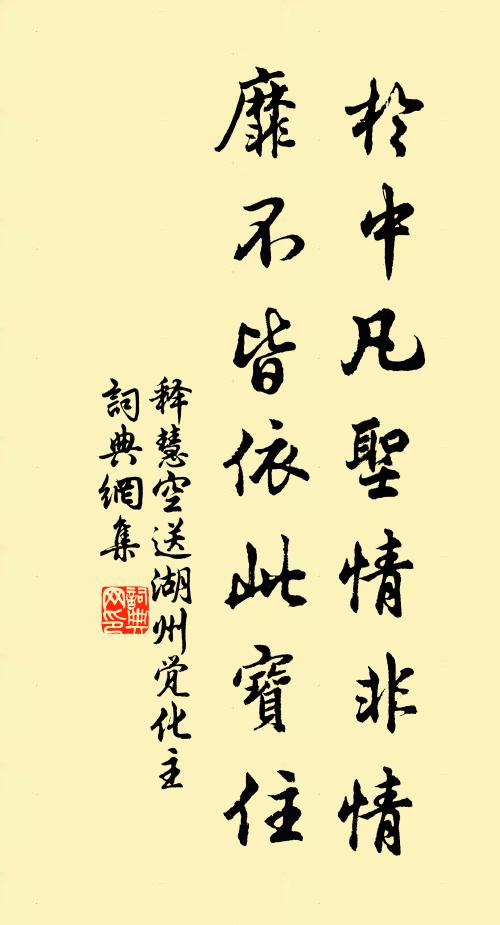 於中凡聖情非情
靡不皆依此寶住
释慧空送湖州觉化主
詞典網集
詞典网印